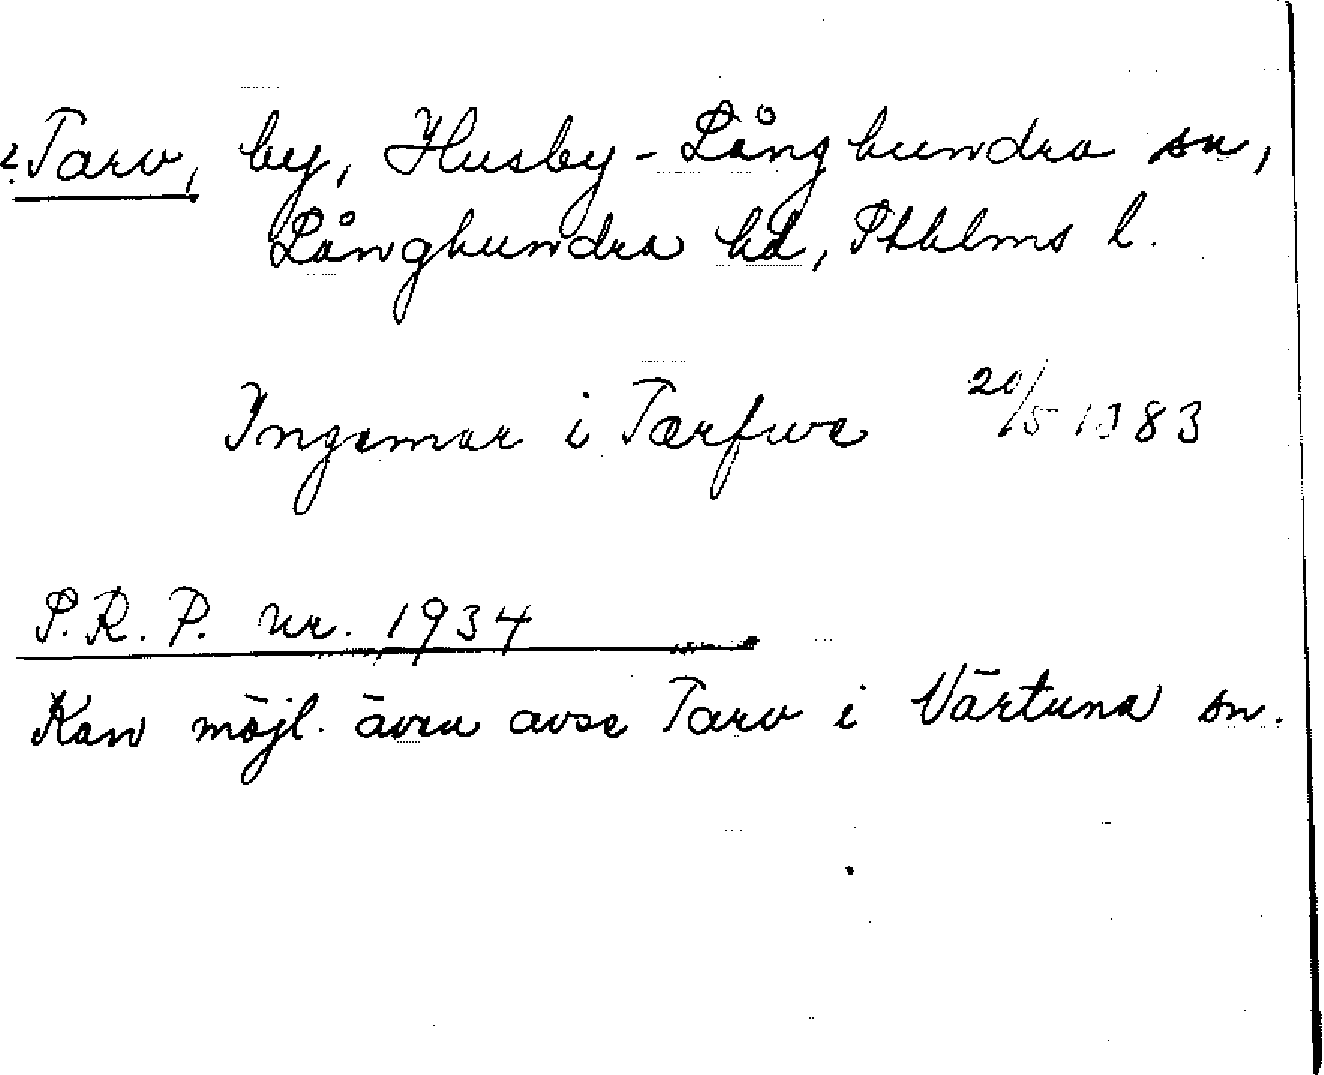 ? Tarv, by, Husby-Långhundra sn,
Långhundra hd, Sthlms l.
Ingemar i Tærfwe 20/5 1383
S.R.P. nr. 1934
Kan möjl. även avse Tarv i Vårtuna sn.